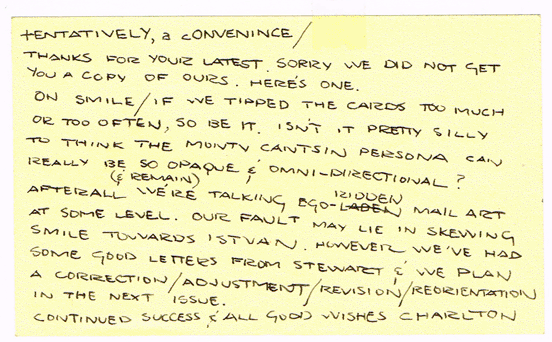 tENTATIVELY, a cONVENINCE/
THANKS FOR YOUR LATEST. SORRY WE DID NOT GET
YOU A COPY OF OURS. HERE'S ONE.
ON SMILE/IF WE TIPPED THE CARDS TOO MUCH
OR TOO OFTEN, SO BE IT. ISN'T IT PRETTY SILLY
TO THINK THE MONTY CANTSIN PERSONA CAN
REALLY BE SO OPAQUE & OMNI-DIRECTIONAL?
(& REMAIN)
AFTERALL WE'RE TALKING EGO-LADEN MAIL ART
RIDDEN
AT SOME LEVEL. OUR FAULT MAY LIE IN SKEWING
SMILE TOWARDS ISTVAN. HOWEVER WE'VE HAD
SOME GOOD LETTERS FROM STEWART & WE PLAN
A CORRECTION/ADJUSTMENT/REVISION/REORIENTATION
IN THE NEXT ISSUE.
CONTINUED SUCCESS & ALL GOOD WISHES CHARLTON